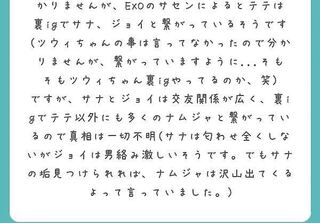 かりませんが、Exoのサセンによるとテテは
裏igでサナ、ジョイと繋がっているそうです
(ツウィちゃんの事は言ってなかったので分か
りませんが、繋がっていますように...そも
そもツウィちゃん裏igやってるのか、笑)
ですが、サナとジョイは交友関係が広く、裏i
gでテテ以外にも多くのナムジャと繋がってい
るので真相は一切不明(サナは匂わせ全くしな
いがジョイは男絡み激しいそうです。でもサナ
の垢見つけられれば、ナムジャは沢山出てくる
よって言っていました。)